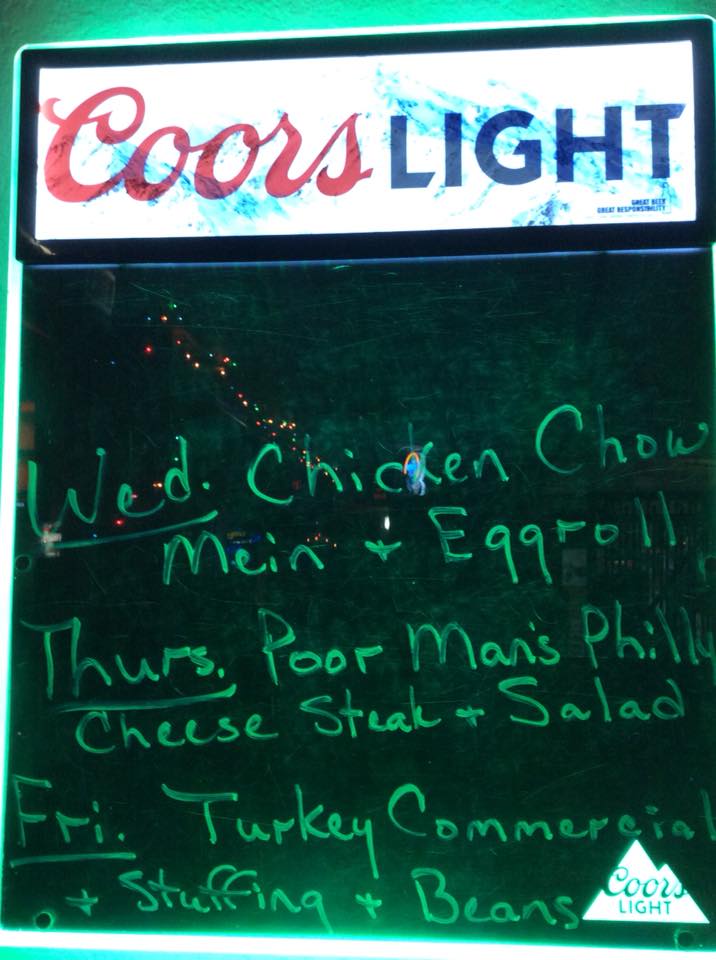 Coors LIGHT
GREAT BEER
GREAT RESPONSIBILITY
Wed. Chicken Chow
Mein + Eggroll
Thurs. Poor Man's Philly
Cheese Steak + Salad
Fri. Turkey Commercial
+ Stuffing + Beans
Coors
LIGHT